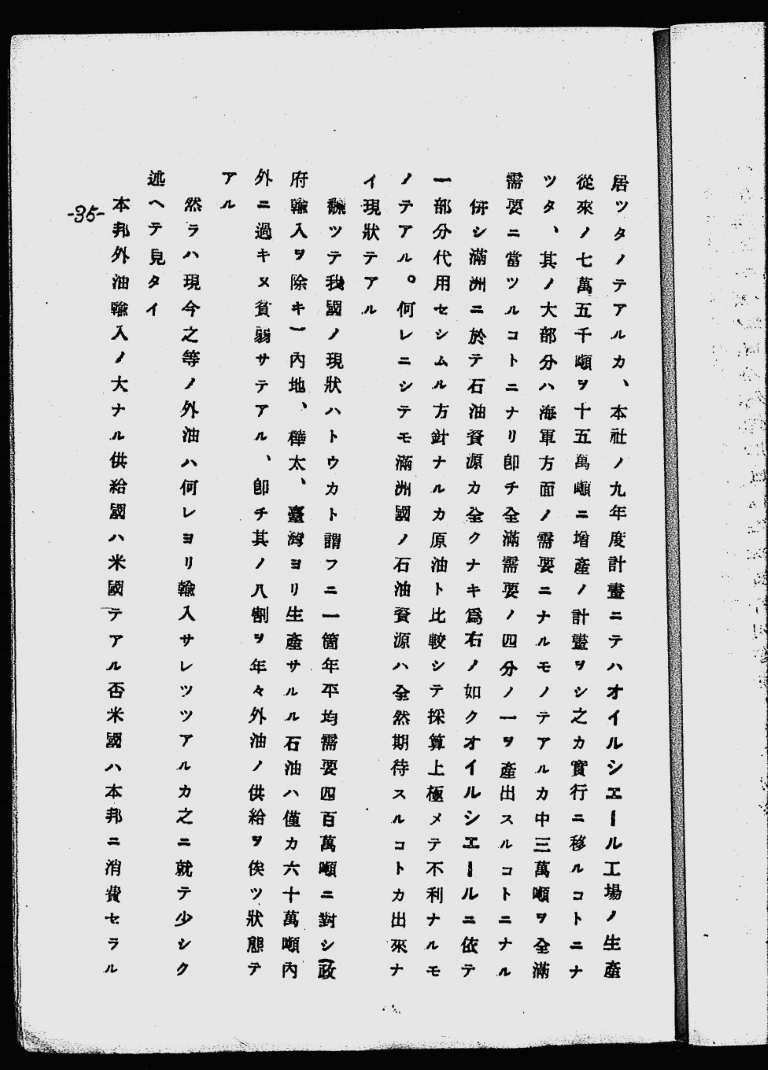 居ツタノテアルカ、本社ノ九年度計畫ニテハオイルシエール工場ノ生產
從來ノ七萬五千噸ヲ十五萬噸ニ增產ノ計畫ヲシ之カ實行ニ移ルコトニナ
ツタ、其ノ大部分ハ海軍方面ノ需要ニナルモノテアルカ中三萬噸ヲ全滿
需要ニ當ツルコトニナリ卽チ全滿需要ノ四分ノ一ヲ產出スルコトニナル
併シ滿洲ニ於テ石油資源カ全クナキ爲右ノ如クオイルシエールニ依テ
一部分代用セシムル方針ナルカ原油ト比較シテ採算上極メテ不利ナルモ
ノテアル。何レニシテモ滿洲國ノ石油資源ハ全然期待スルコトカ出來ナ
イ現狀テアル
飜ツテ我國ノ現狀ハトウカト謂フニ一箇年平均需要四百萬噸ニ對シ(政
府輸入ヲ除キ)內地、樺太、臺灣ヨリ生產サルル石油ハ僅カ六十萬噸內
外ニ過キヌ貧弱サテアル、卽チ其ノ八割ヲ年々外油ノ供給ヲ俟ツ狀態テ
アル
然ラハ現今之等ノ外油ハ何レヨリ輸入サレツツアルカ之ニ就テ少シク
述ヘテ見タイ
本邦外油輸入ノ大ナル供給國ハ米國テアル否米國ハ本邦ニ消費セラル
-35-